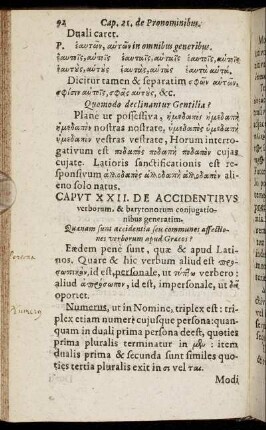 92 Cap. 21. de Pronominibus.
Duali caret.
P. ἑαυτῶν, αὑτῶν in omnibus generibus.
ἑαυτοῖς, αὑτοῖς ἑαυταῖς, αὑταῖς ἑαυτοῖς, αὑτοῖς
ἑαυτοὺς, αὑτοὺς ἑαυτὰς, αὑτὰς ἑαυτὰ αὑτά.
Dicitur tamen & separatim σφῶν αὐτῶν,
σφίσιν αὐτοῖς, σφᾶς αὐτοὺς, &c.
Quomodo declinantur Gentilia?
Plane ut possessiva, ἡμεδαπὸς ἡμεδαπὴ
ἡμεδαπὸν nostras nostrate, ὑμεδαπὸς ὑμεδαπὴ
ὑμεδαπὸν vestras vestrate, Horum interro-
gativum est ποδαπὸς ποδαπὴ ποδαπὸν cujas
cujate. Latioris significationis est re-
sponsivum ἀλλοδαπὸς ἀλλοδαπὴ ἀλλοδαπὸν ali-
eno solo natus.
CAPUT XXII. DE ACCIDENTIBVS
verborum, & barytonorum conjugatio-
nibus generatim.
Quænam sunt accidentia seu communes affectio-
nes verborum apud Græcos?
Eædem pene sunt, quæ & apud Lati-
nos. Quare & hic verbum aliud est προσ-
ωπικὸν, id est, personale, ut τύπτω verbero:
aliud ἀπρόσωπον, id est, impersonale, ut δεῖ
oportet.
Numerus, ut in Nomine, triplex est: tri-
plex etiam numeri cujusque persona: quan-
quam in duali prima persona deest, quoties
prima pluralis terminatur in μεν: item
dualis prima & secunda sunt similes quo-
ties tertia pluralis exit in σι vel ται.
Modi